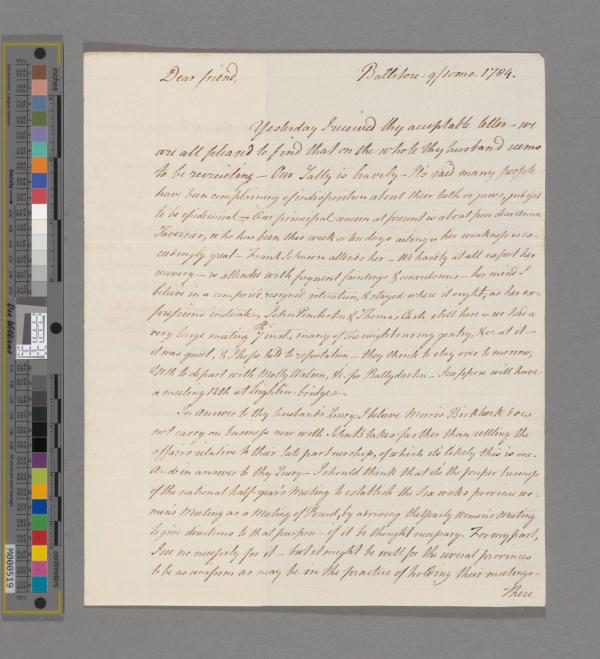 Dear friend,
Ballitore: 9/10mo. 1784.
Yesterday I received thy acceptable letter – we
are all pleased to find that on the whole thy husband seems
to be recruiting – Our Sally is bravely – It's said many people
have been complaining of indisposition about their teeth or jaws, judged
to be epidemial – Our principal concern at present is about poor dear Anna
Taverner, who has been this week or ten days ailing & her weakness is ex-
ceedingly great – Frank Johnson attends her – We hardly at all expect her
recovery – is attended with frequent faintings & convulsions – her mind I
believe in a composed, resigned situation, & stayed where it ought, as her ex-
pressions indicate – John Pemberton & Thomas Cash still here – we had a
very large meeting 7th inst, many of the neighbouring gentry, &c. at it –
it was quiet, & I hope held to reputation – they think to stay over to morrow,
11th to depart with Molly Watson, &c. for Ballydarten – I suppose will have
a meeting 12th at Leighlin-bridge –
In answer to thy husband's Query, I believe Morris Birkbeck does
not carry on business now with John B takes farther than settling the
affairs relative to their late partnership, of which it's likely this is one.
And in answer to thy Query – I should think that it's the proper business
of the national half-year's meeting to establish the six weeks province wo-
men's Meeting as a Meeting of Record, by advising the Yearly Women's Meeting
to give directions to that purpose – if it be thought necessary. For my part,
I see no necessity for it – but it might be well for the several provinces
to be as uniform as may be in the practice of holding their meetings –
There
inches
centimeters
Don Williams
M000519